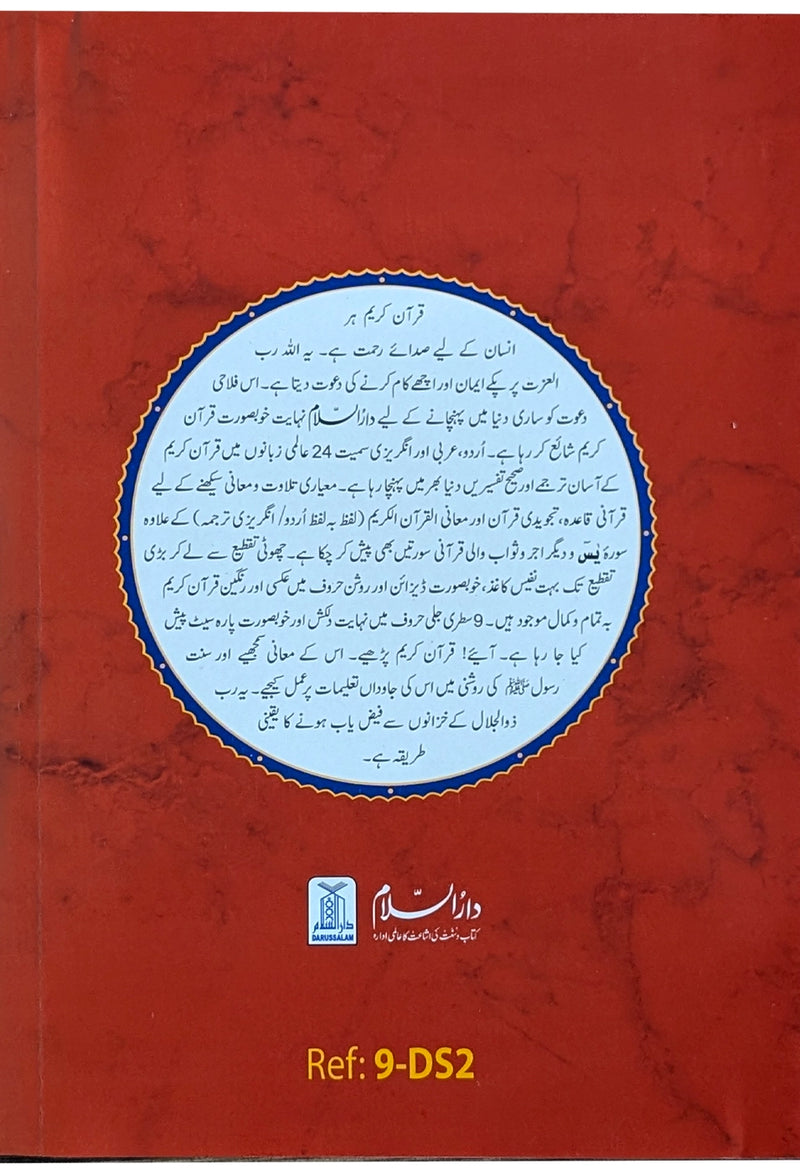 قرآن کریم ہر
انسان کے لیے صدائے رحمت ہے۔ یہ اللہ رب
العزت پر پکے ایمان اور اچھے کام کرنے کی دعوت دیتا ہے۔ اس فلاحی
دعوت کو ساری دنیا میں پہنچانے کے لیے دارُالسّلام نہایت خوبصورت قرآن
کریم شائع کر رہا ہے۔ اُردو، عربی اور انگریزی سمیت 24 عالمی زبانوں میں قرآن کریم
کے آسان ترجمے اور صحیح تفسیریں دنیا بھر میں پہنچا رہا ہے۔ معیاری تلاوت و معانی سیکھنے کے لیے
قرآنی قاعدہ، تجویدی قرآن اور معانی القرآن الکریم (لفظ بہ لفظ اُردو/ انگریزی ترجمہ) کے علاوہ
سورۂ یٰسٓ و دیگر اجر و ثواب والی قرآنی سورتیں بھی پیش کر چکا ہے۔ چھوٹی تقطیع سے لے کر بڑی
تقطیع تک بہت نفیس کاغذ، خوبصورت ڈیزائن اور روشن حروف میں عکسی اور رنگین قرآن کریم
بہ تمام و کمال موجود ہیں۔ 9 سطری جلی حروف میں نہایت دلکش اور خوبصورت پارہ سیٹ پیش
کیا جا رہا ہے۔ آیئے! قرآن کریم پڑھیے۔ اس کے معانی سمجھیے اور سنت
رسول ﷺ کی روشنی میں اس کی جاوداں تعلیمات پر عمل کیجیے۔ یہ رب
ذوالجلال کے خزانوں سے فیض یاب ہونے کا یقینی
طریقہ ہے۔
دارُالسّلام
کتاب و سنت کی اشاعت کا عالمی ادارہ
دارالسلام
DARUSSALAM
Ref: 9-DS2